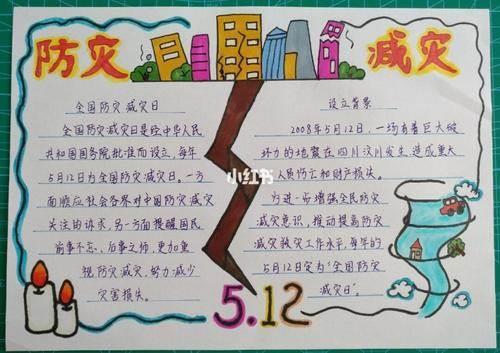 防灾 减灾
全国防灾减灾日
全国防灾减灾日是经中华人民
共和国国务院批准而设立,每年
5月12日为全国防灾减灾日。一方
面顺应社会各界对中国防灾减灾
关注的诉求,另一方面提醒国民
前事不忘、后事之师,更加重
视防灾减灾,努力减少
灾害损失。
设立背景
2008年5月12日,一场有着巨大破
坏力的地震在四川汶川发生,造成重大
人员伤亡和财产损失。
为进一步增强全民防灾
减灾意识,推动提高防灾
减灾救灾工作水平,每年的
5月12日定为"全国防灾
减灾日"。
小红书
5.12